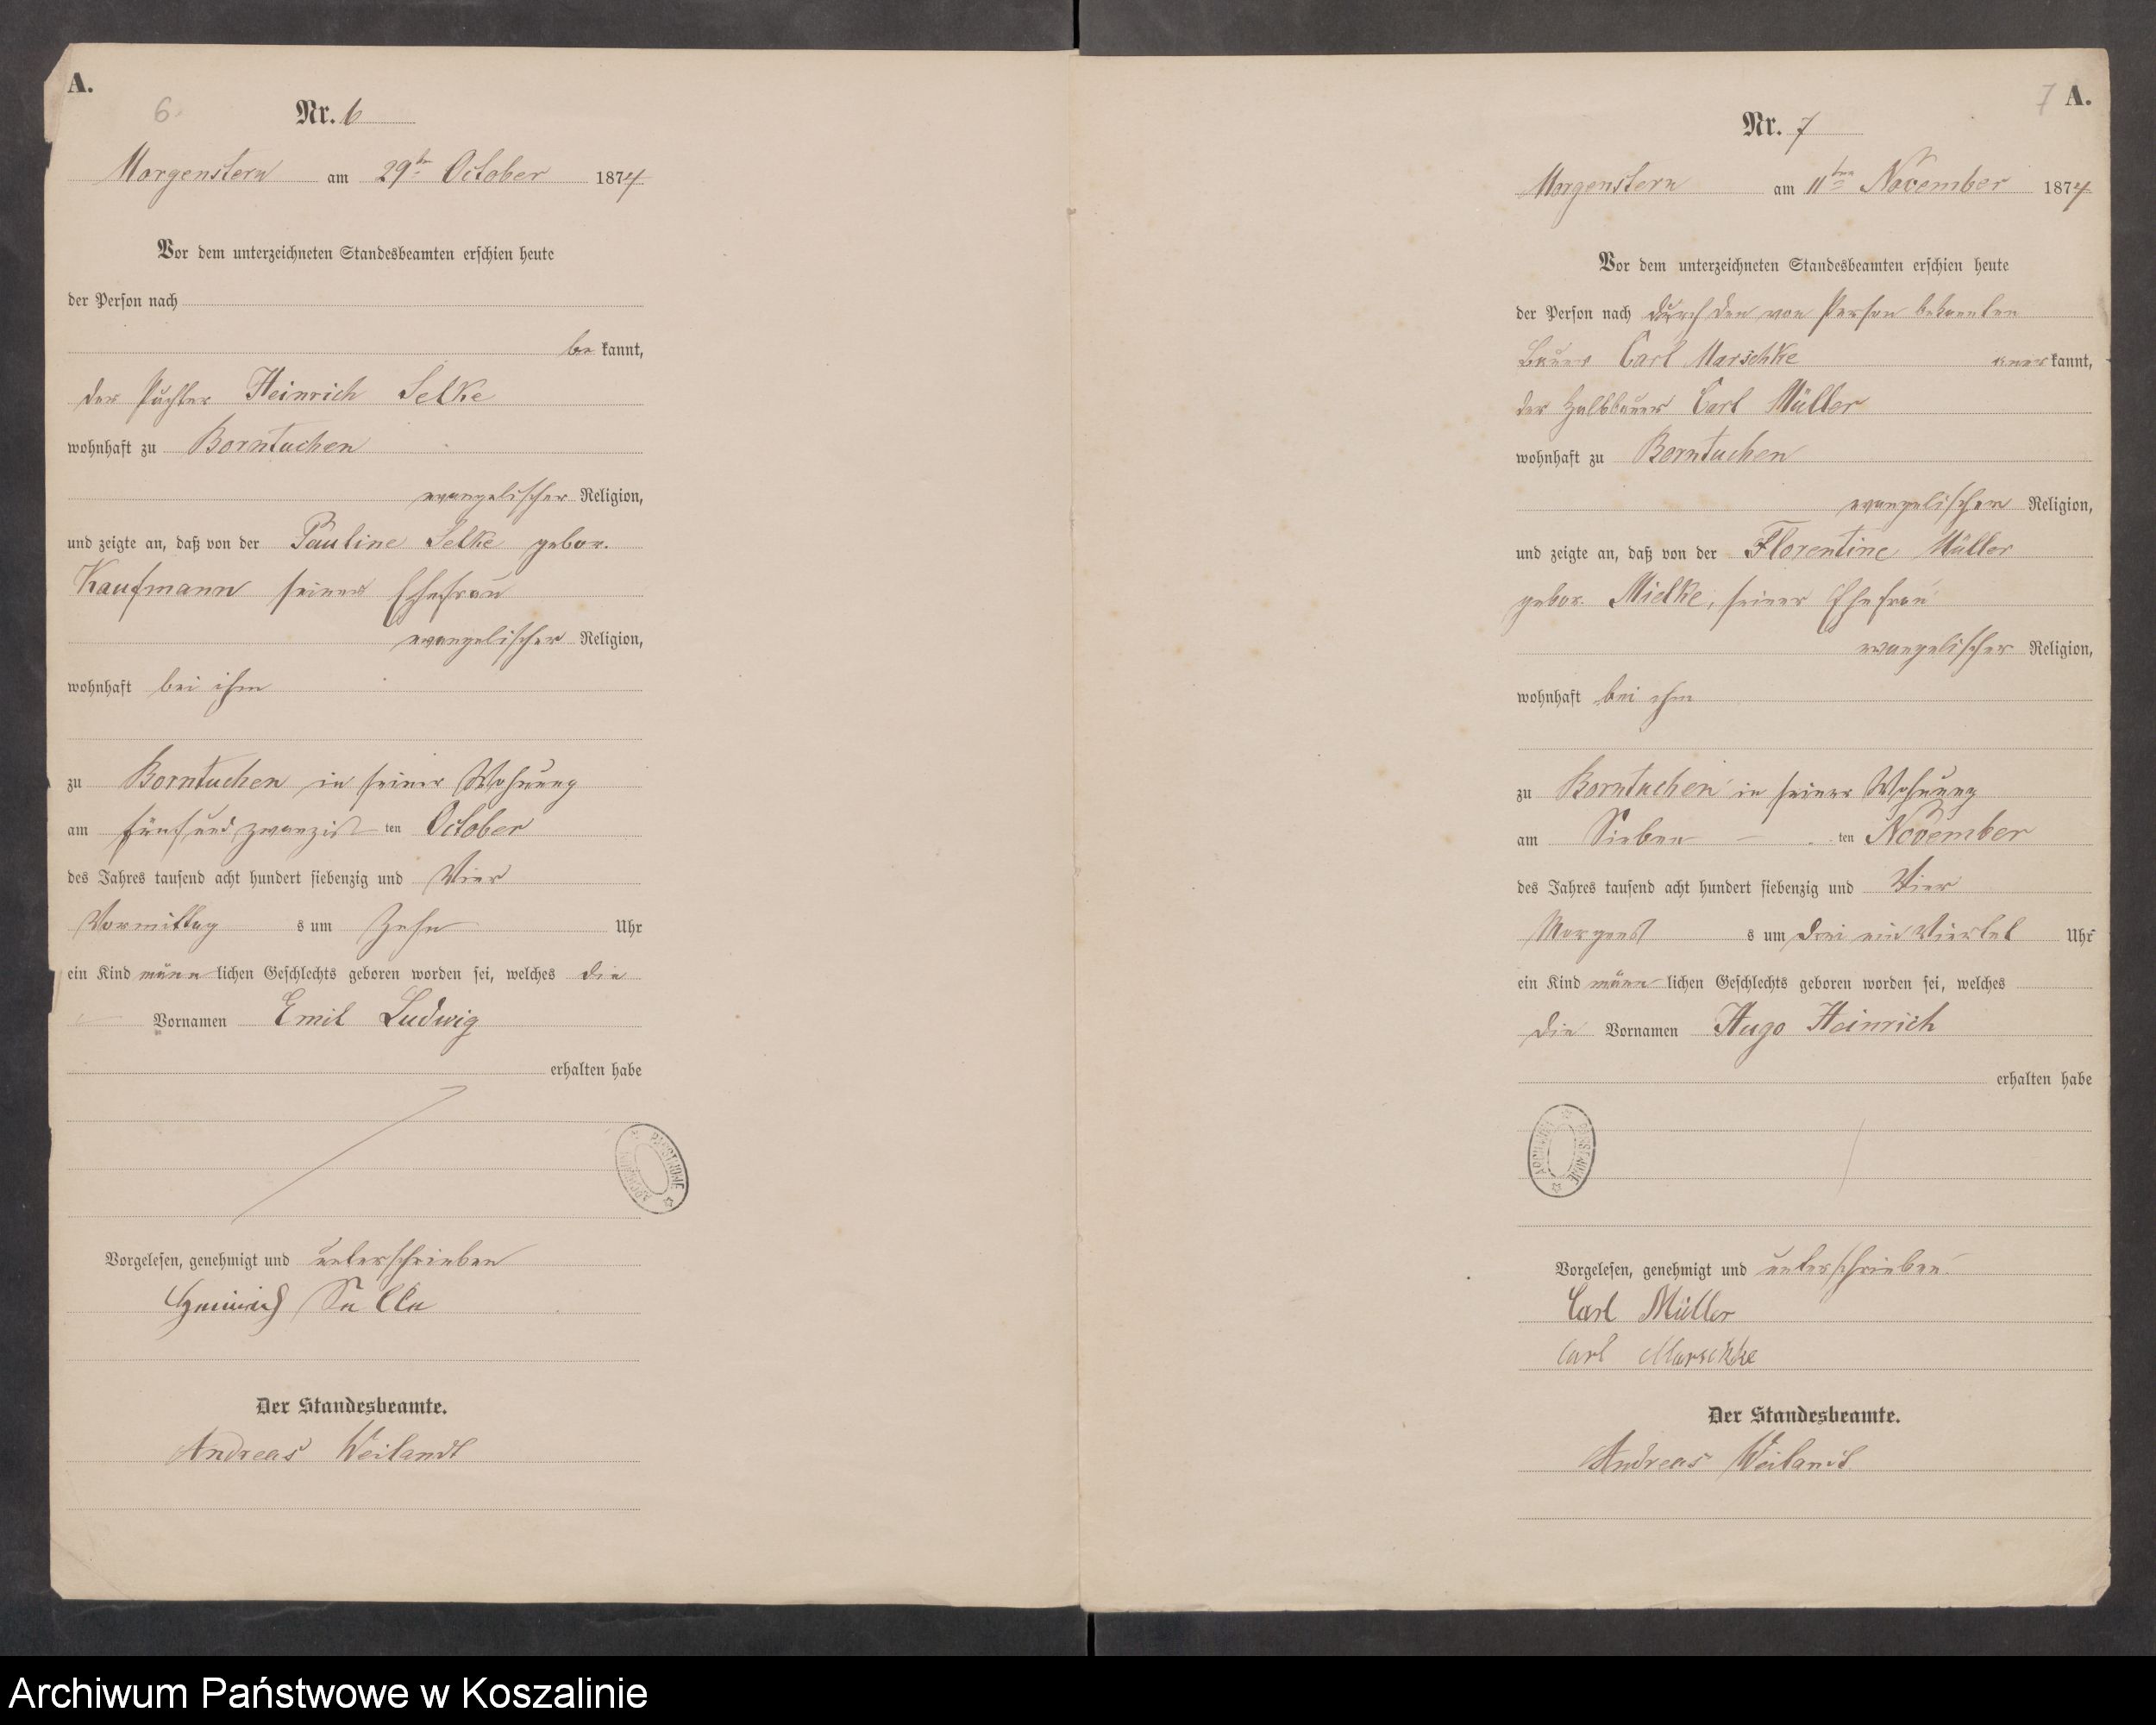 A.
6.
Nr. 6
Morgenstern am 29ten October 1874
Vor dem unterzeichneten Standesbeamten erschien heute
der Person nach
be kannt,
der Pächter Heinrich Selke
wohnhaft zu Borntuchen
evangelischer Religion,
und zeigte an, daß von der Pauline Selke gebor.
Kaufmann seiner Ehefrau
evangelischer Religion,
wohnhaft bei ihm
zu Borntuchen in seiner Wohnung
am fünfundzwanzigst ten October
des Jahres tausend acht hundert siebenzig und Vier
Vormittag s um Zehn Uhr
ein Kind männ lichen Geschlechts geboren worden sei, welches die
Vornamen Emil Ludwig
erhalten habe
ARCHIWUM PAŃSTWOWE
Vorgelesen, genehmigt und unterschrieben
Heinrich Selke
Der Standesbeamte.
Andreas Weilandt
7 A.
Nr. 7
Morgenstern am 11ten November 1874
Vor dem unterzeichneten Standesbeamten erschien heute
der Person nach durch den von Person bekannten
Bauer Carl Marschke aner kannt,
der Halbbauer Carl Müller
wohnhaft zu Borntuchen
evangelischer Religion,
und zeigte an, daß von der Florentine Müller
gebor. Mielke, seiner Ehefrau
evangelischer Religion,
wohnhaft bei ihm
zu Borntuchen in seiner Wohnung
am Sieben ten November
des Jahres tausend acht hundert siebenzig und Vier
Morgens s um drei ein Viertel Uhr
ein Kind männ lichen Geschlechts geboren worden sei, welches
die Vornamen Hugo Heinrich
erhalten habe
ARCHIWUM PAŃSTWOWE
Vorgelesen, genehmigt und unterschrieben
Carl Müller
Carl Marschke
Der Standesbeamte.
Andreas Weilandt
Archiwum Państwowe w Koszalinie